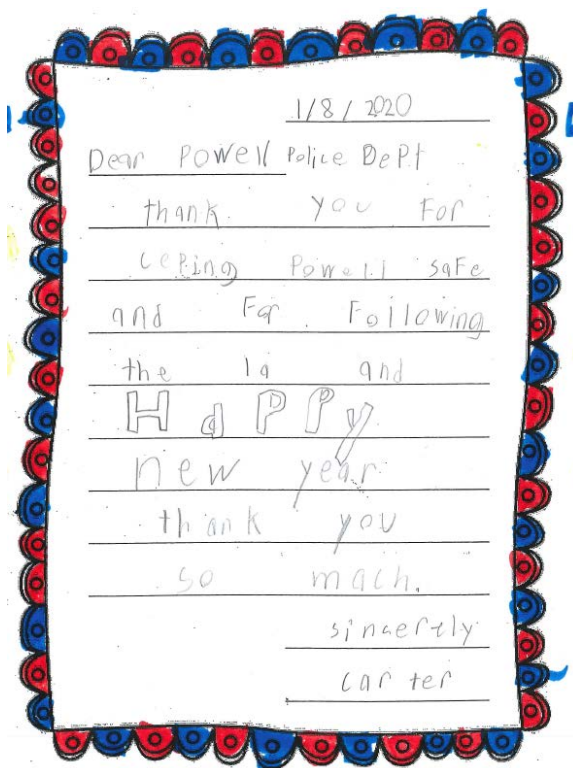 1/8/2020
Dear Powell Police DePt
thank you For
cePing Powell saFe
and For Following
the la and
HaPPy
new year
thank you
so mach.
sincertly
carter